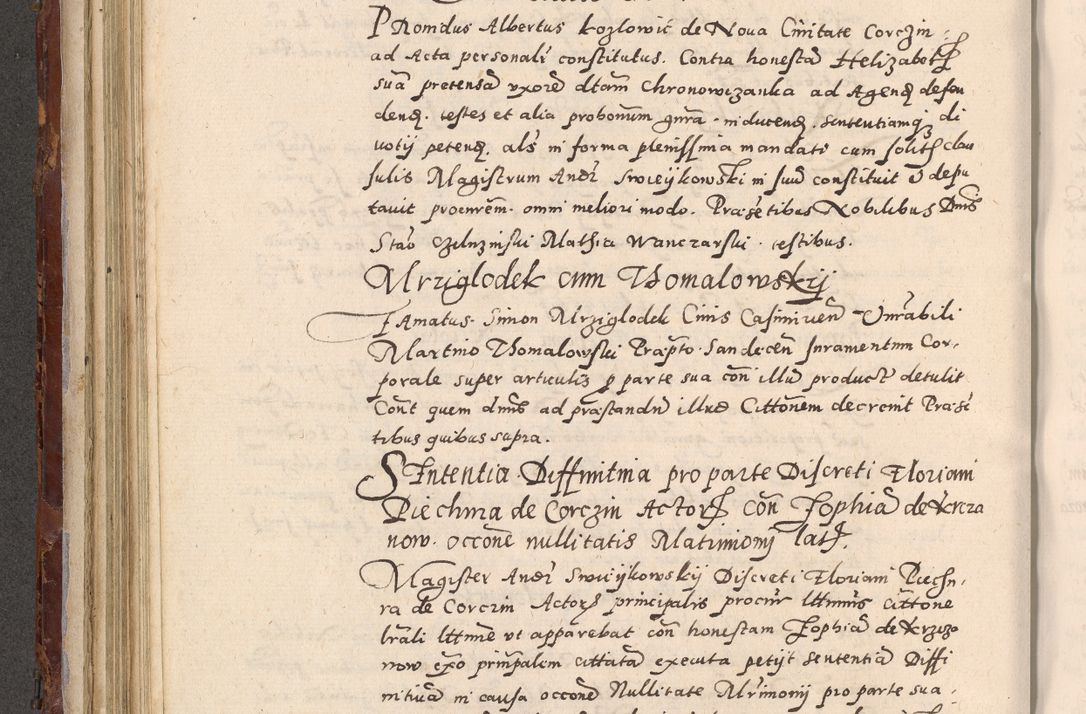 PRomdus Albertus kozlowic de Noua Ciuitate Corczin
ad Acta personalr constitutus. Contra honestã Helizabeth
suã pretensã vxorẽ dtam Chronowizanka ad Agend defen
dend. testes et alia probonum gnra inducend. sententiamq di
uotij petend. als in forma plenissima mandati cum solitis clau
sulis Magistrum Andr Swieijkowski in suũ constituit & depu
tauit procurem. omni meliori modo. Præsetibus Nobilibus Dnis
Stao Mathia Wanczarski testibus.
Mrziglodek cum Thomalowskij
FAmatus Simon Mrziglodek Ciuis Casimirieñ Vnrabili
Martino Thomalowski Præpto Sandeceñ Iuramentum Cor,
porale super articulis p parte sua coñ illũ product detulit
Cont quem dnus ad præstandũ illud Cittonem decreuit Præse
tibus quibus supra.
SEntentia Diffinitiua pro parte Discreti Floriani
Piechura de Corczin Actoris coñ Zophiã de Krzcza
now occone nullitatis Matrimonij lata.
Magister Andr Swieijkowskij Discreti Floriani Piechu,
ra de Corczin Actoris principalis procur lttimus cittone
lrali lttime vt apparebat coñ honestam Zophiã de Krzczo
now exo prinpalem cittatã executa petijt sententiã Diffi
nitiuã in causa occone Nullitate Mrimonij pro parte sua